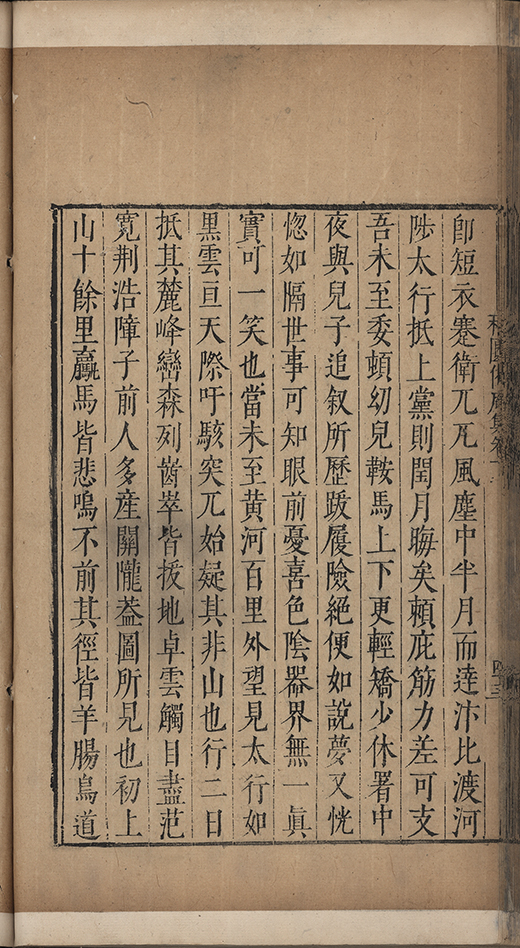 卽短衣蹇衛兀兀風塵中半月而達汴比渡河
陟太行抵上黨則閏月晦矣頼庇筋力差可支
吾未至委頓幼兒鞍馬上下更輕矯少休署中
夜與兒子追叙所歷跋履險絕便如說夢又恍
惚如隔世事可知眼前憂喜色陰器界無一眞
實可一笑也當未至黃河百里外望見太行如
黒雲亘天際吁駭突兀始疑其非山也行二日
抵其麓峰巒森列崷崒皆拔地卓雲觸目盡范
寬荆浩障子前人多產關隴葢圖所見也初上
山十餘里羸馬皆悲鳴不前其徑皆羊腸鳥道